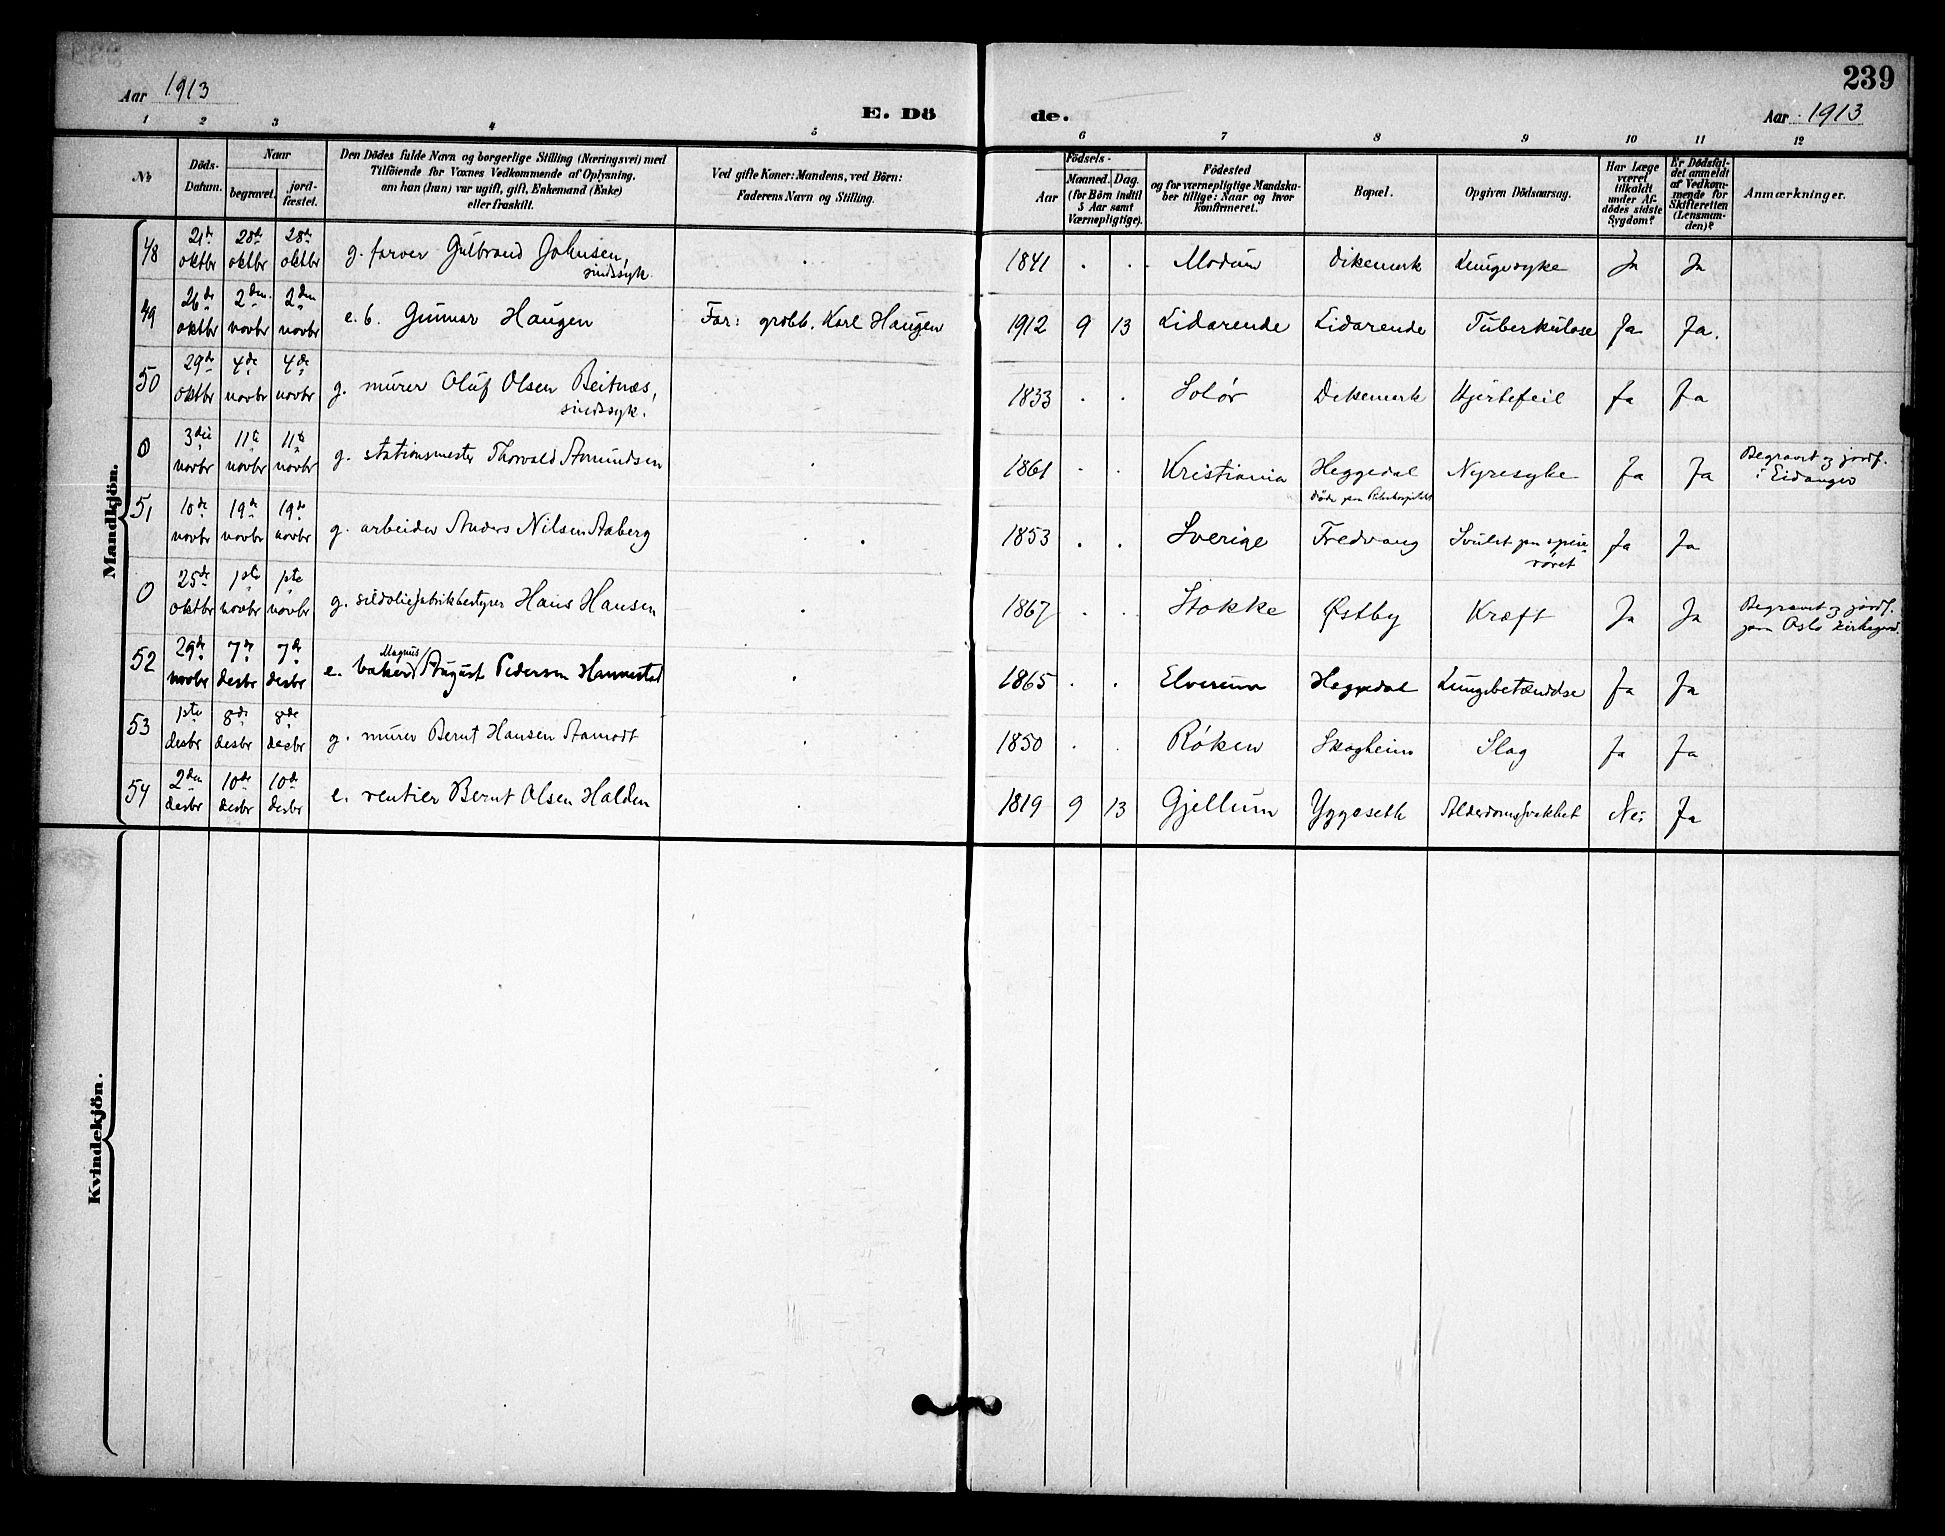 239
Aar 1913
E. Dö
de.
Aar 1913
1 2 3 4 5 6 7 8 9 10 11 12
No
Döds-
Datum.
Naar
begravet.
jord-
fæstet.
Den Dödes fulde Navn og borgerlige Stilling (Næringsvei) med
Tilföiende for Voxnes Vedkommende af Oplysning,
om han (hun) var ugift, gift, Enkemand (Enke)
eller fraskilt.
Ved gifte Koner: Mandens, ved Börn:
Faderens Navn og Stilling.
Födsels-
Aar
Maaned. Dag.
(for Börn indtil
5 Aar samt
Værnepligtige).
Födested
og for værnepligtige Mandska-
ber tillige: Naar og hvor
Konfirmeret.
Bopæl.
Opgiven Dödsaarsag.
Har Læge
været
tilkaldt
under Af-
dödes sidste
Sygdom?
Er Dödsfal-
det anmeldt
af Vedkom-
mende for
Skifteretten
(Lensman-
den)?
Anmærkninger.
Mandkjön.
48 21de oktbr 28de oktbr 28de oktbr g. farver Gulbrand Johnsen, 1841 . . Modum Dikemark Lungesyke Ja Ja
sindssyk.
49 26de oktbr 2den novbr 2den novbr e. b. Gunnar Haugen Far: grobb. Karl Haugen 1912 9 13 Lidarende Lidarende Tuberkulose Ja Ja.
50 29de oktbr 4de novbr 4de novbr g. murer Oluf Olsen Beitnæs, 1833 . . Solør Dikemark Hjertefeil Ja Ja
sindssyk.
0 3die novbr 11te novbr 11te novbr g. stationsmester Thorvald Amundsen 1861 . . Kristiania Heggedal Nyresyke Ja Ja Begravet og jordf.
i Eidanger
døde paa
51 10de novbr 19de novbr 19de novbr g. arbeider Anders Nilsen Aaberg 1853 . . Sverige Fredvang Svulst paa spise-
røret Ja Ja
0 25de oktbr 1ste novbr 1ste novbr g. sildoliefabrikbestyrer Hans Hansen 1867 . . Stokke Østby Kræft Ja Ja Begravet og jordf.
paa Oslo kirkegaard.
52 29de novbr 7de desbr 7de desbr e. baker Magnus August Pedersen Hannestad 1865 . . Elverum Heggedal Lungebetændelse Ja Ja
53 1ste desbr 8de desbr 8de desbr g. murer Bernt Hansen Aamodt 1850 . . Røken Skogheim Slag Ja Ja
54 2den desbr 10de desbr 10de desbr e. rentier Bernt Olsen Halden 1819 9 13 Gjellum Yggeseth Alderdomssvakhet Nei Ja
Kvindekjön.